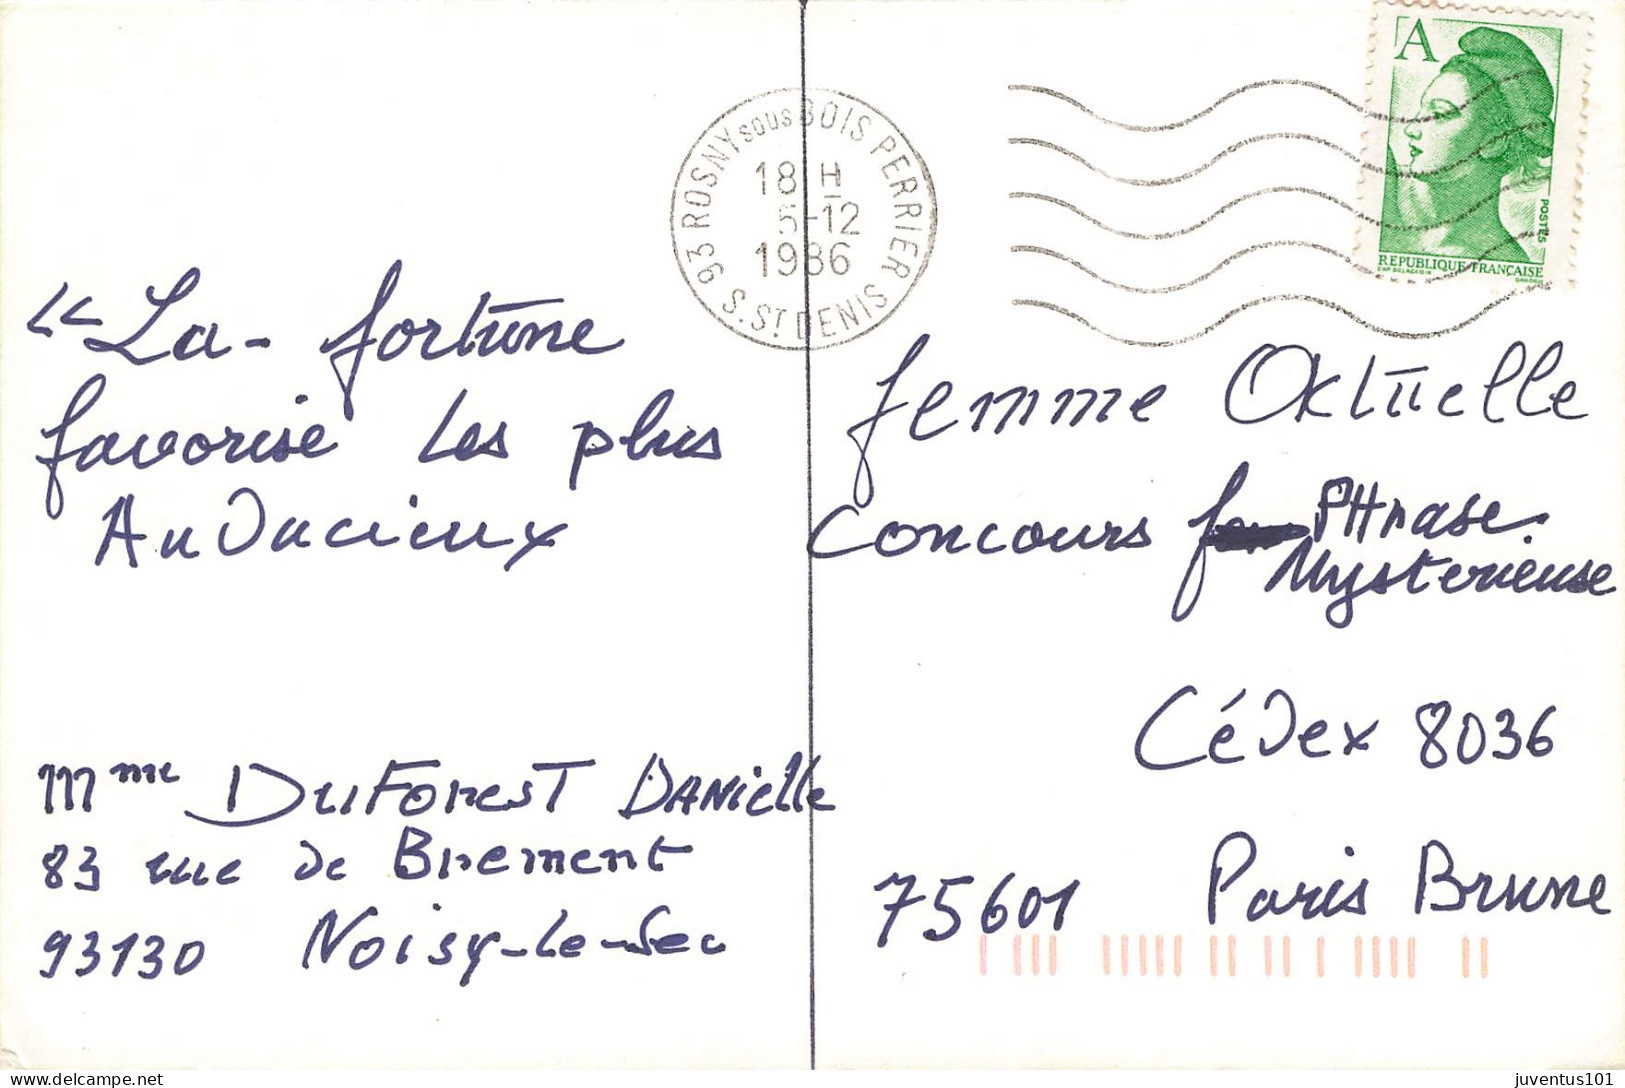 A
POSTES
REPUBLIQUE FRANÇAISE
93 ROSNY sous BOIS PERRIER
18 H
5-12
1986
S. ST DENIS
"La- fortune
favorise les plus
Audacieux
femme Actuelle
Concours PHrase.
Mysterieuse
Cédex 8036
75601 Paris Brune
Mme DuForest DANielle
83 rue de Brement
93130 Noisy-le-Sec
juventus101